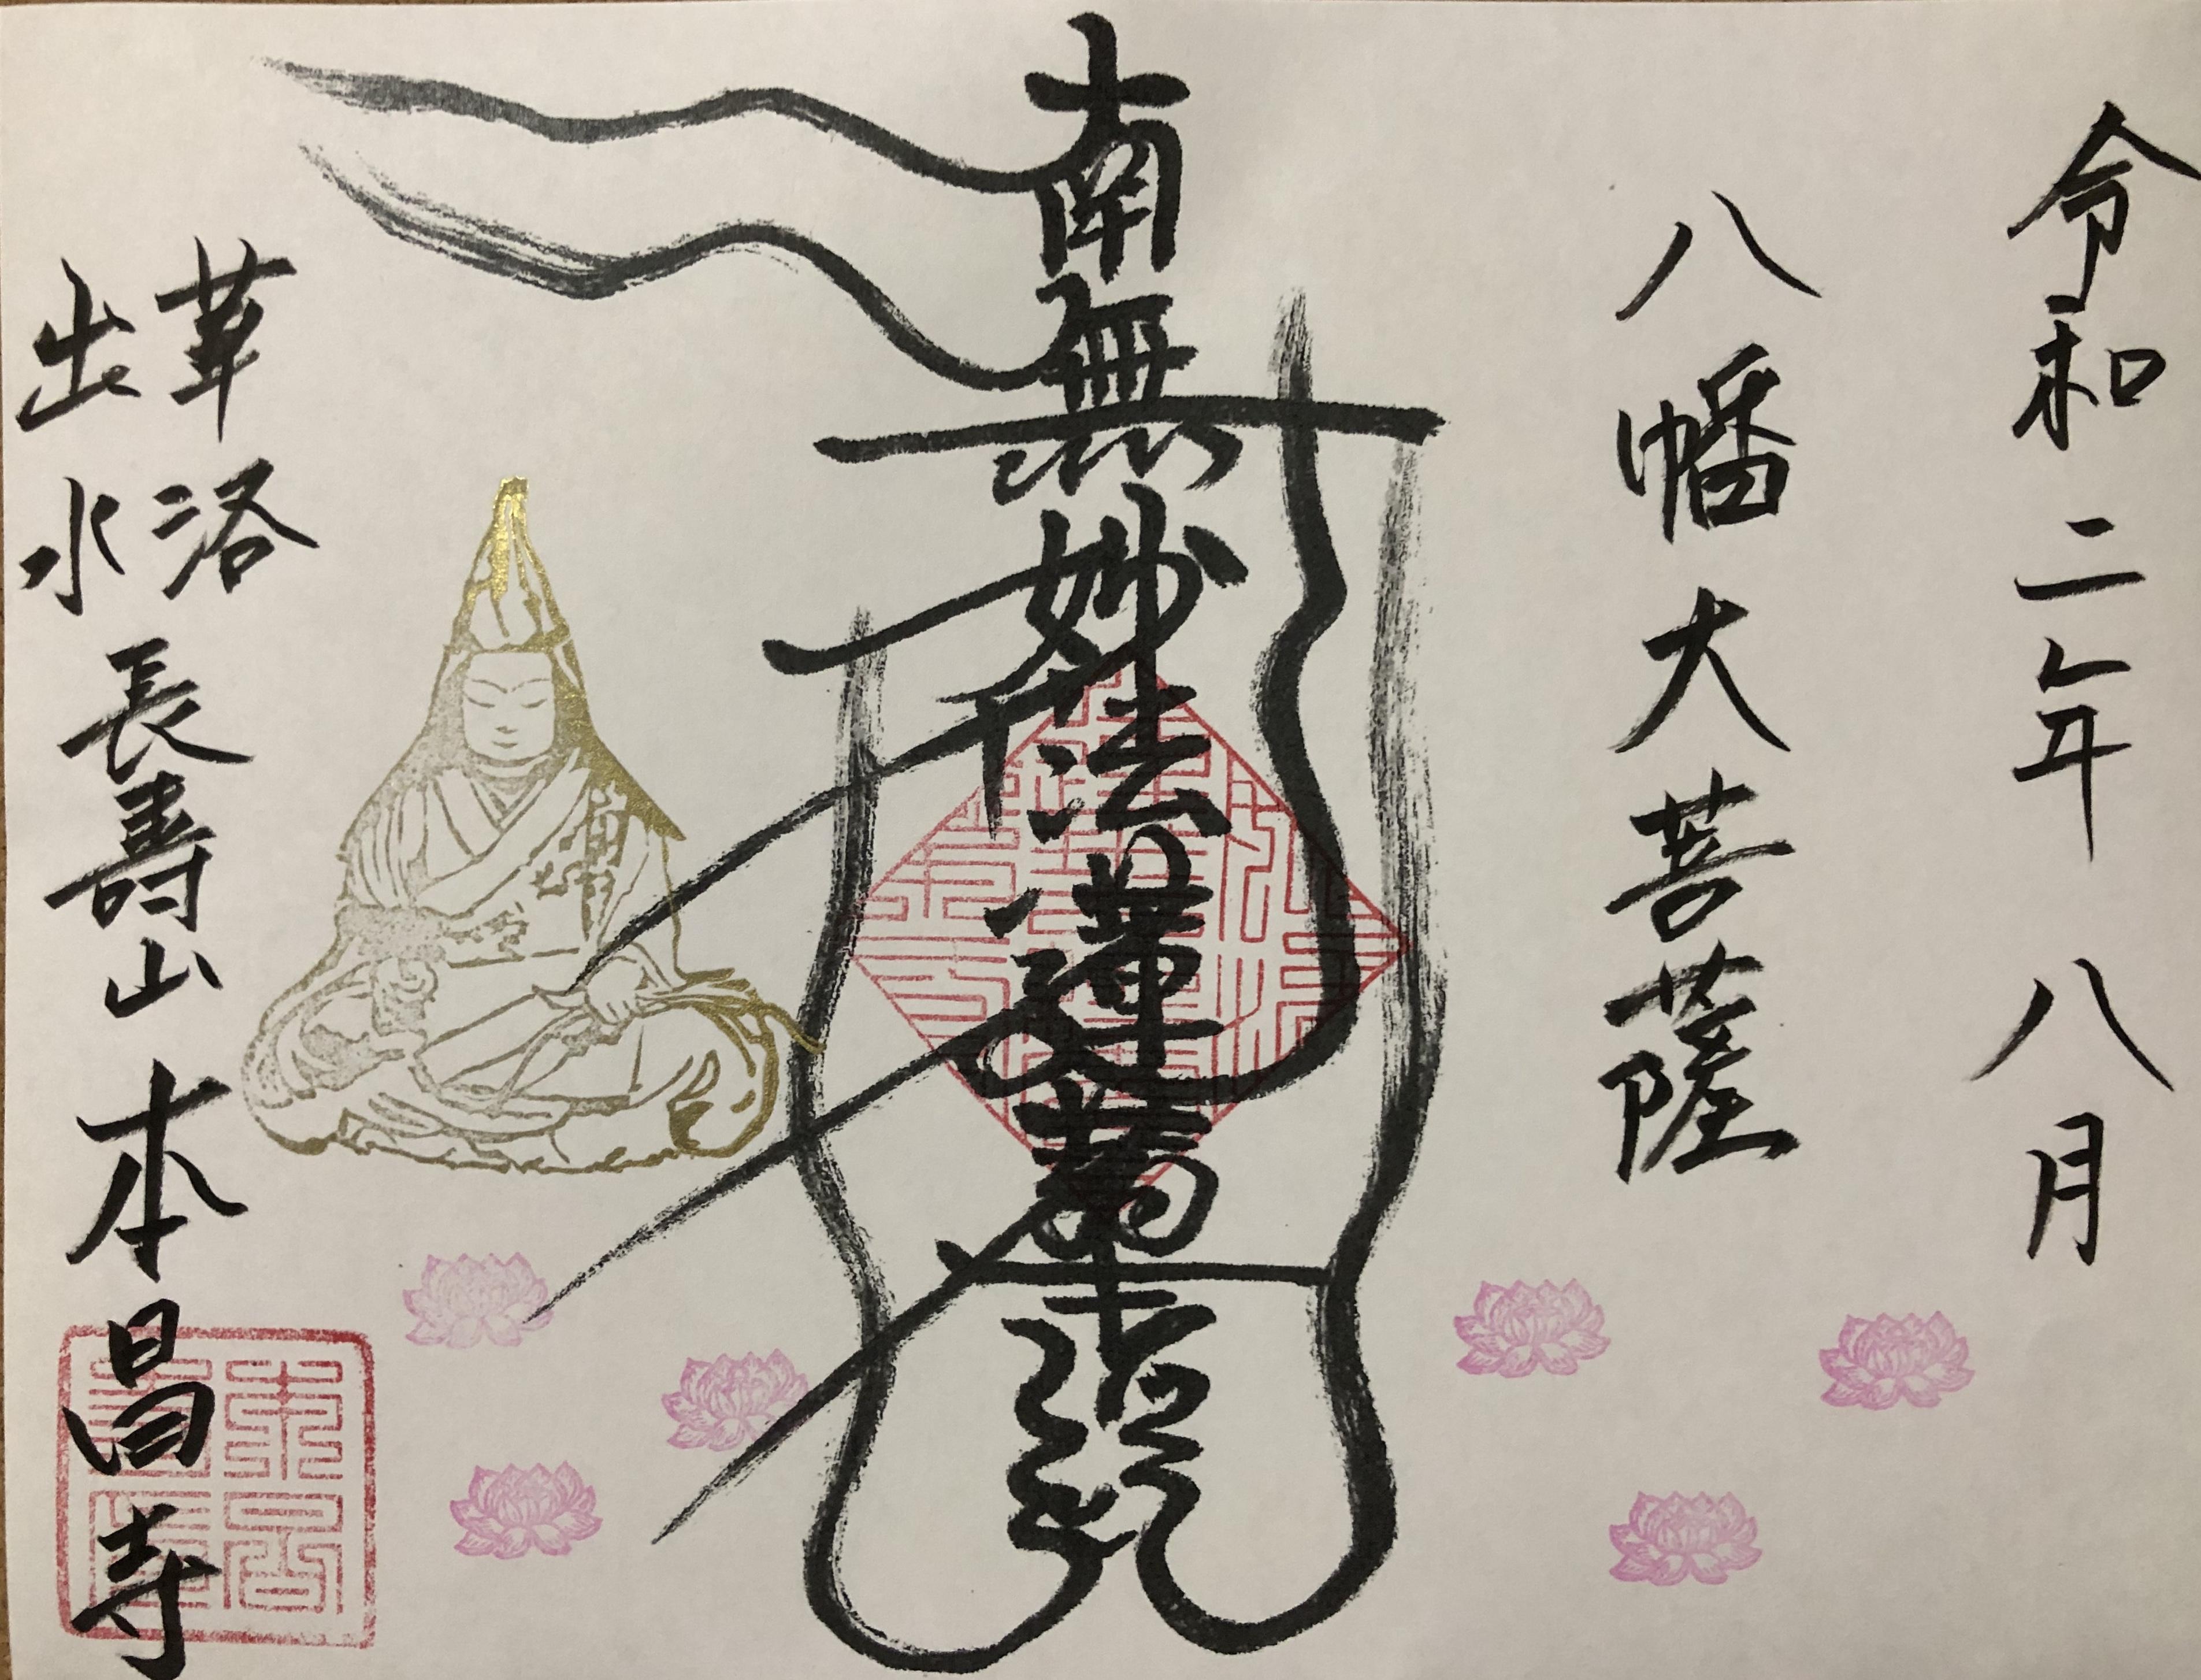 令和二年八月
八幡大菩薩
南無妙法蓮華経
華洛
出水
長壽山本昌寺